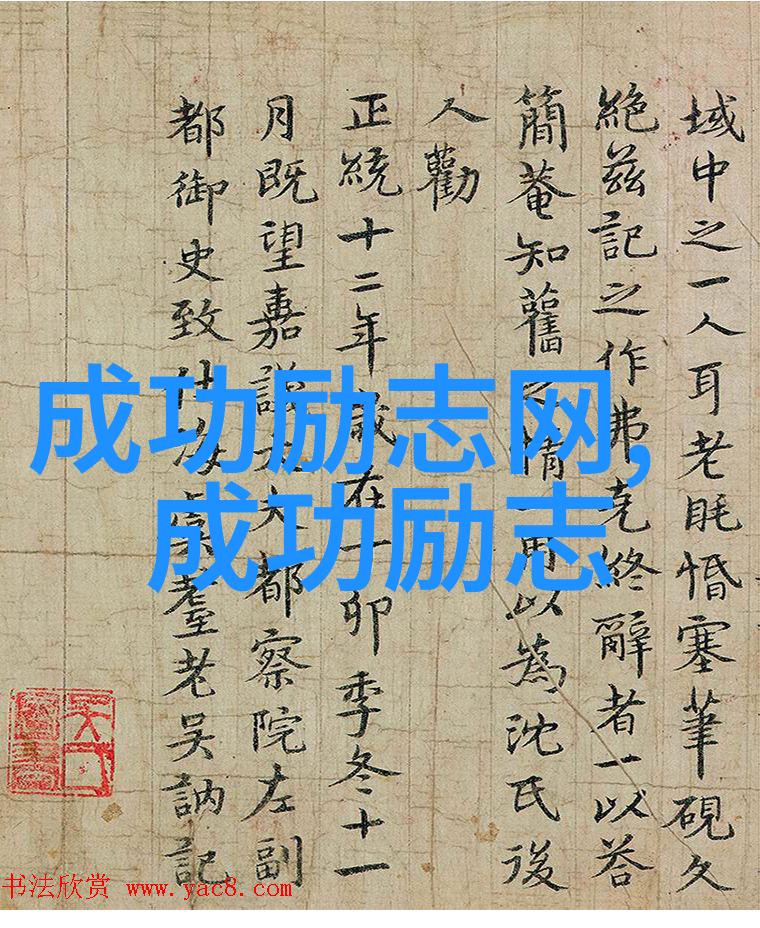 域中之一人耳老眊惛塞筆硯久
絶兹記之作弗克終辭者一以荅
簡菴知舊之情一用以為沈氏後
人勸
正統十二年歲在丁卯季冬十一
月既望嘉議大夫都察院左副
都御史致仕海虞耋老吳訥記
成功励志网,
成功励志
书法欣赏 www.yac8.com